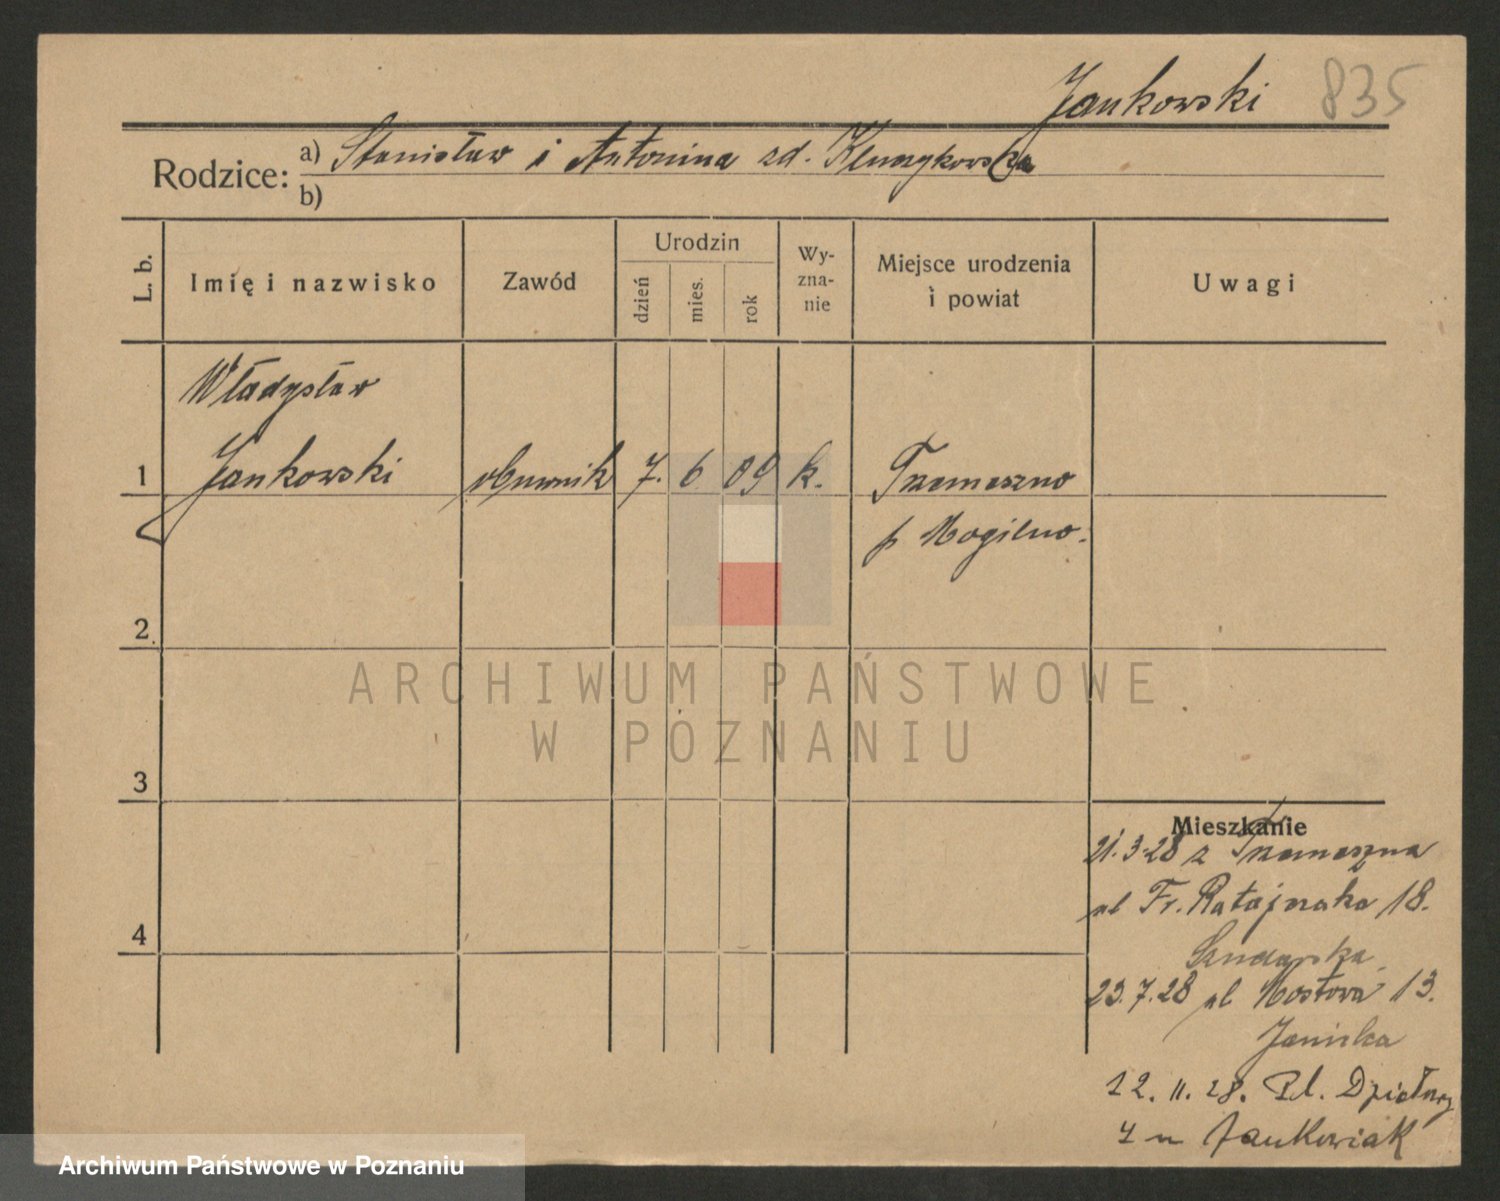 Jankowski 835
Rodzice: a) Stanisław i Antonina zd.
b)
L. b. Imię i nazwisko Zawód Urodzin dzień mies. rok Wyznanie Miejsce urodzenia i powiat Uwagi
Władysław
1 Jankowski obuwnik 7. 6 09 k. Trzemeszno
p Mogilno.
2
3
4
Mieszkanie
21.3.28 z Trzemeszna
ul Fr. Ratajczaka 18.
23.7.28 ul Mostowa 13.
Janicka
12. 11. 28. Pl. Działowy
4 u Jankowiak
ARCHIWUM PAŃSTWOWE
W POZNANIU
Archiwum Państwowe w Poznaniu